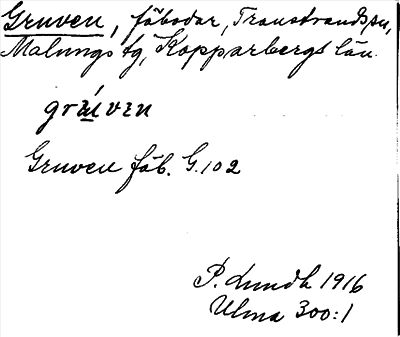 Gruven, fäbodar, Transtrands sn,
Malungs tg, Kopparbergs län.
Gruven fäb. G. 102
P. Lundh 1916
Ulma 300:1